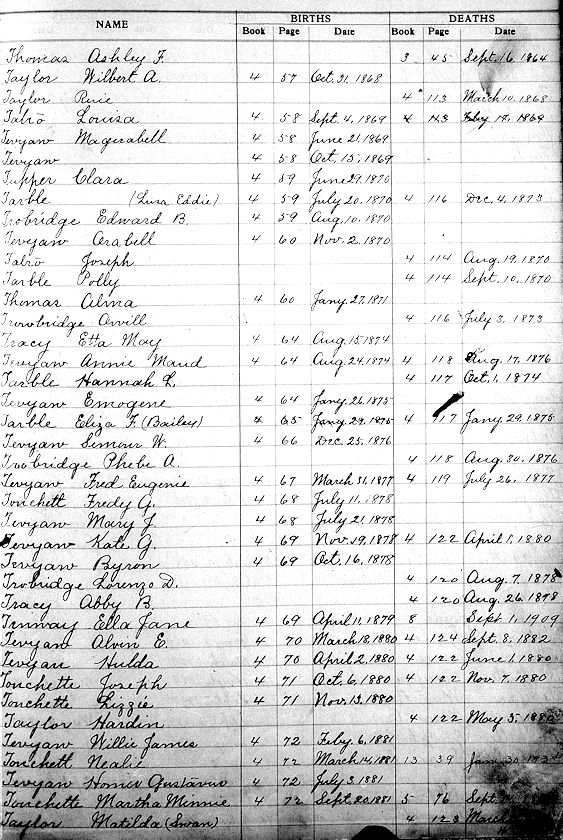 NAME BIRTHS DEATHS
Book Page Date Book Page Date
Thomas Ashley F. 3 45 Sept. 16, 1864
Taylor Wilbert A. 4 57 Oct. 31, 1868
Taylor 4 113 March 10, 1868
Tabro Louisa 4 58 Sept. 4, 1869 4 113 Feby 17, 1869
Tevyaw Magicabell 4 58 June 21, 1869
Tevyaw 4 58 Oct. 15, 1869
Tupper Clara 4 59 June 29, 1870
Tarble (Lura Eddie) 4 59 July 20, 1870 4 116 Dec. 4, 1873
Trobridge Edward B. 4 59 Aug. 10, 1870
Tevyaw Arabell 4 60 Nov. 2, 1870
Tabro Joseph 4 114 Aug. 19, 1870
Tarble Polly 4 114 Sept. 10, 1870
Thomas Alma 4 60 Jany. 27, 1871
Trowbridge Orvill 4 116 July 3, 1873
Tracy Etta May 4 64 Aug. 15 1874
Tevyaw Annie Maud 4 64 Aug. 24, 1874 4 118 Aug. 17, 1876
Tarble Hannah L. 4 117 Oct. 1, 1874
Tevyaw Emogene 4 64 Jany. 26, 1875
Tarble Eliza F. (Bailey) 4 65 Jany. 29, 1875 4 117 Jany 29, 1875
Tevyaw Simour W. 4 66 Dec. 25, 1876
Trobridge Phebe A. 4 118 Aug. 30, 1876
Tevyaw Fred Eugenie 4 67 March 31, 1877 4 119 July 26, 1877
Tonchett Fredy G. 4 68 July 11, 1878
Tevyaw Mary J. 4 68 July 21, 1878
Tevyaw Kate G. 4 69 Nov. 19, 1878 4 122 April 1, 1880
Tevyaw Byron 4 69 Oct. 16, 1878
Trobridge Lorenzo D. 4 120 Aug. 7, 1878
Tracy Abby B. 4 120 Aug. 26, 1878
Ella Jane 4 69 April 11, 1879 8 Sept 1, 1909
Tevyaw Alvin E. 4 70 March 18, 1880 4 124 Sept. 8, 1882
Tevyau Hulda 4 70 April 2, 1880 4 122 June 1, 1880
Tonchette Joseph 4 71 Oct. 6, 1880 4 122 Nov. 7, 1880
Tonchette Lizzie 4 71 Nov. 13, 1880
Taylor Hardin 4 122 May 3, 1880
Tevyaw Willie James 4 72 Feby. 6, 1881
Tonchett Nealie 4 72 March 14, 1881 13 39 Jan. 30
Tevyaw Homer Gustavus 4 72 July 3, 1881
Tonchette Martha Minnie 4 72 Sept. 20, 1881 5 76 Sept.
Taylor Matilda (Swan) 4 123 March